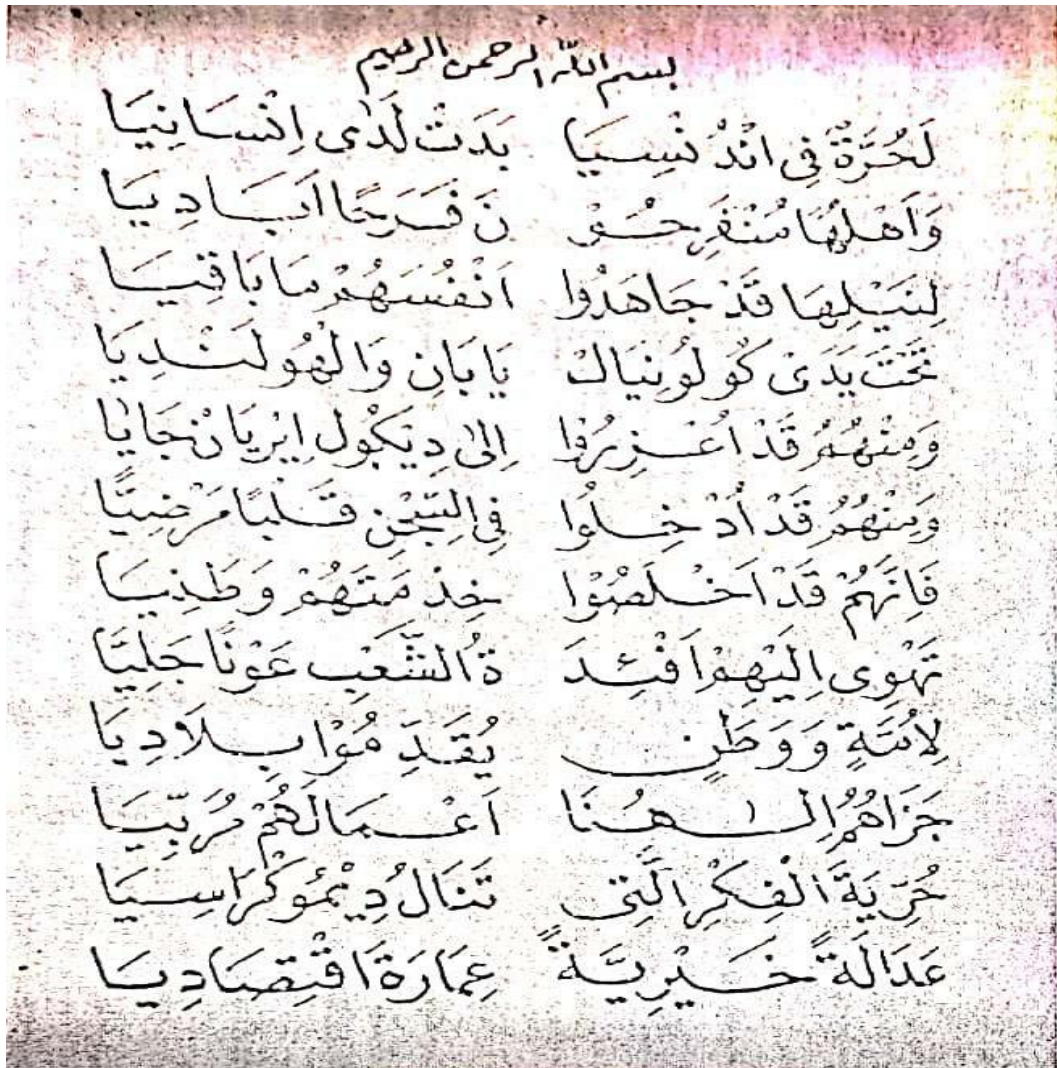 بسم الله الرحمن الرحيم
لَحُرَّةٌ فِى اَنْدُنْسِيَا بَدَتْ لَدٰى اِنْسَانِيَا
وَاَهْلُهَا مُنْفَرِحُوْ نَ فَرَحًا اَبَادِيَا
لِنَيْلِهَا قَدْ جَاهَدُوْا اَنْفُسَهُمْ مَا بَاقِيَا
تَحْتَ يَدَىْ كَوْلُوْنِيَاكْ يَابَانِ وَالْهُولَنْدِيَا
وَمِنْهُمُ قَدْ اُغْزِرُوْا اِلٰى دِيكُوْلِ اِيْرِيَانْ جَايَا
وَمِنْهُمُ قَدْ اُدْخِلُوْا فِى السِّجْنِ قَلْبًا مَرْضِيًّا
فَاِنَّهُمْ قَدْ اَخْلَصُوْا خِدْمَتَهُمْ وَطَنِيَا
تَهْوِى اِلَيْهِمْ اَفْئِدَ ةُ الشَّعْبِ عَوْنًا جَلِيَّا
لِاُمَّةٍ وَوَطَنٍ يُقَدِّمُوْا بِلَادِيَا
جَزَاهُمُ اِلٰهُنَا اَعْمَالَهُمْ مُرَبِّيَا
حُرِّيَةَ الْفِكْرِ الَّتِى تَنَالُ دِيْمُوكْرَاسِيَا
عَدَالَةً خَيْرِيَّةً عِمَارَةَ اقْتِصَادِيَا